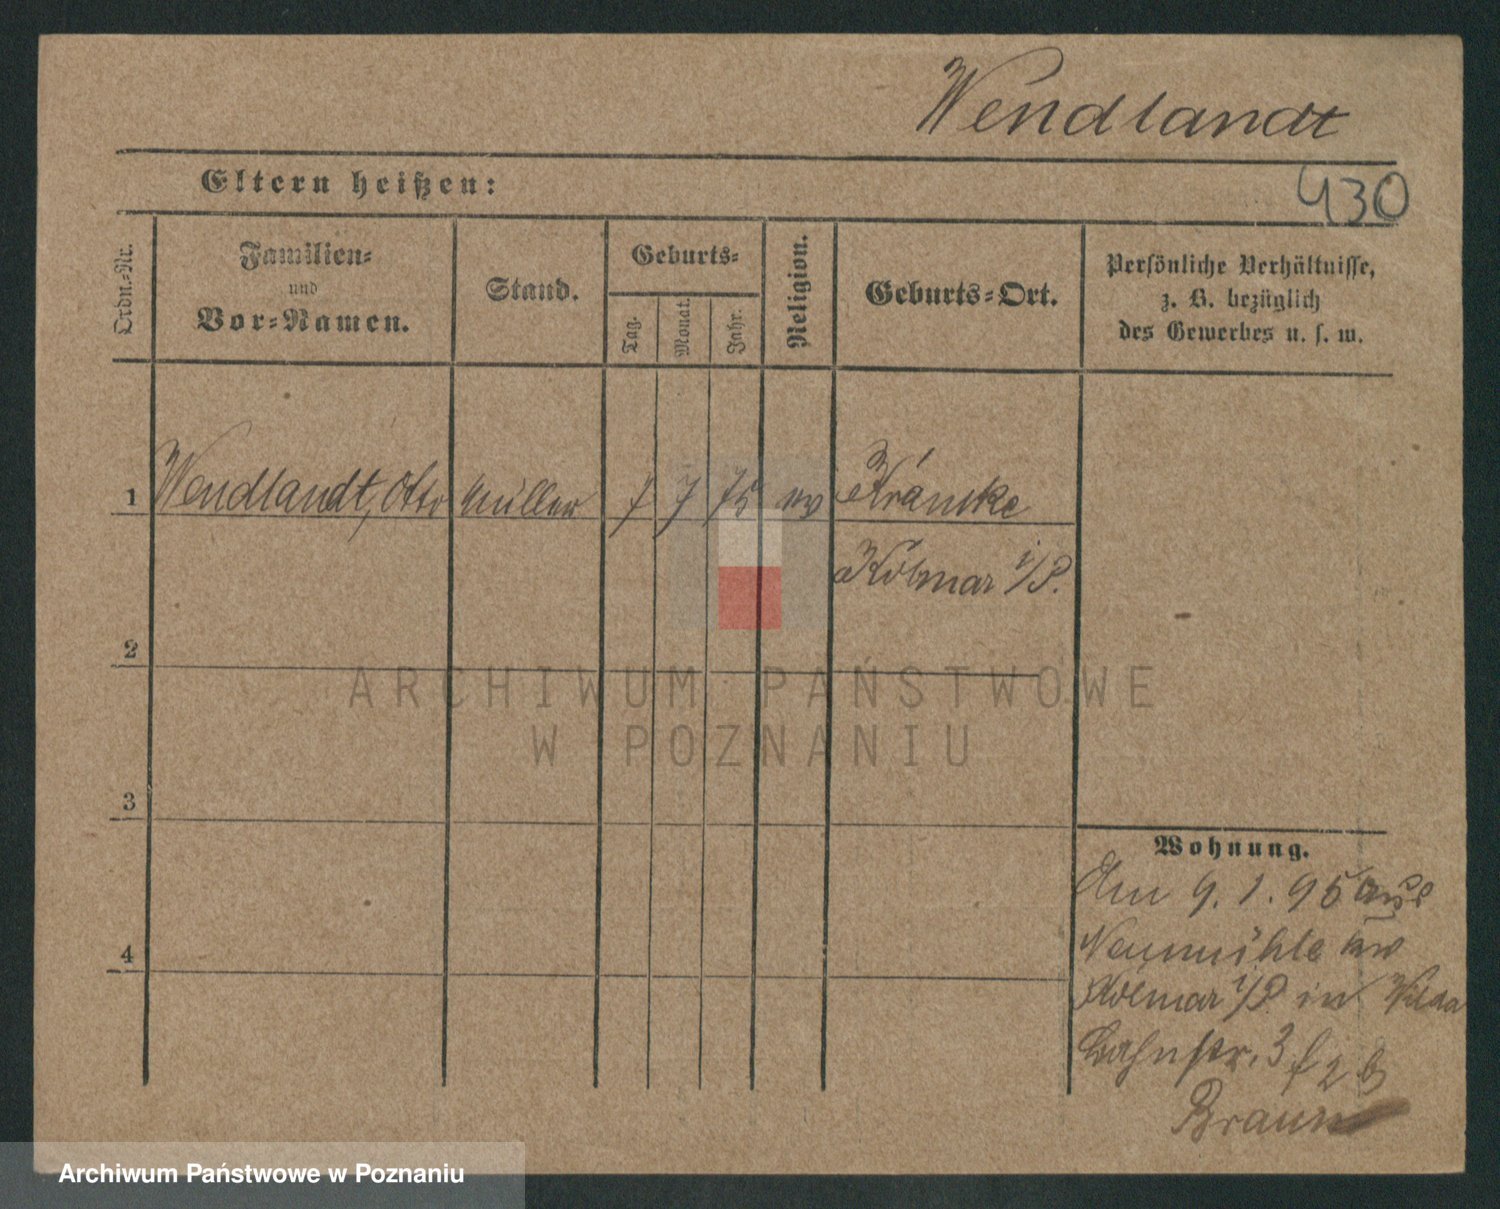 Wendlandt
430
Eltern heißen:
Ordn.-Nr.
Familien-
und
Vor-Namen.
Stand.
Geburts-
Tag.
Monat.
Jahr.
Religion.
Geburts-Ort.
Persönliche Verhältnisse,
z. B. bezüglich
des Gewerbes u. s. w.
1 Wendlandt, Otto Müller 7 7 75 ev
Kolmar i/P.
2
ARCHIWUM PAŃSTWOWE
W POZNANIU
3
Wohnung.
Am 9.1.95 aus
Neumühle
4
Kolmar i/P in Wilda
Bahnstr. 3
Braun
Archiwum Państwowe w Poznaniu